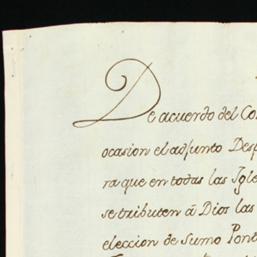 De acuerdo del Co
ocasion el adjunto Desp
ra que en todas las Igle
se tributen â Dios las
eleccion de Sumo Pont